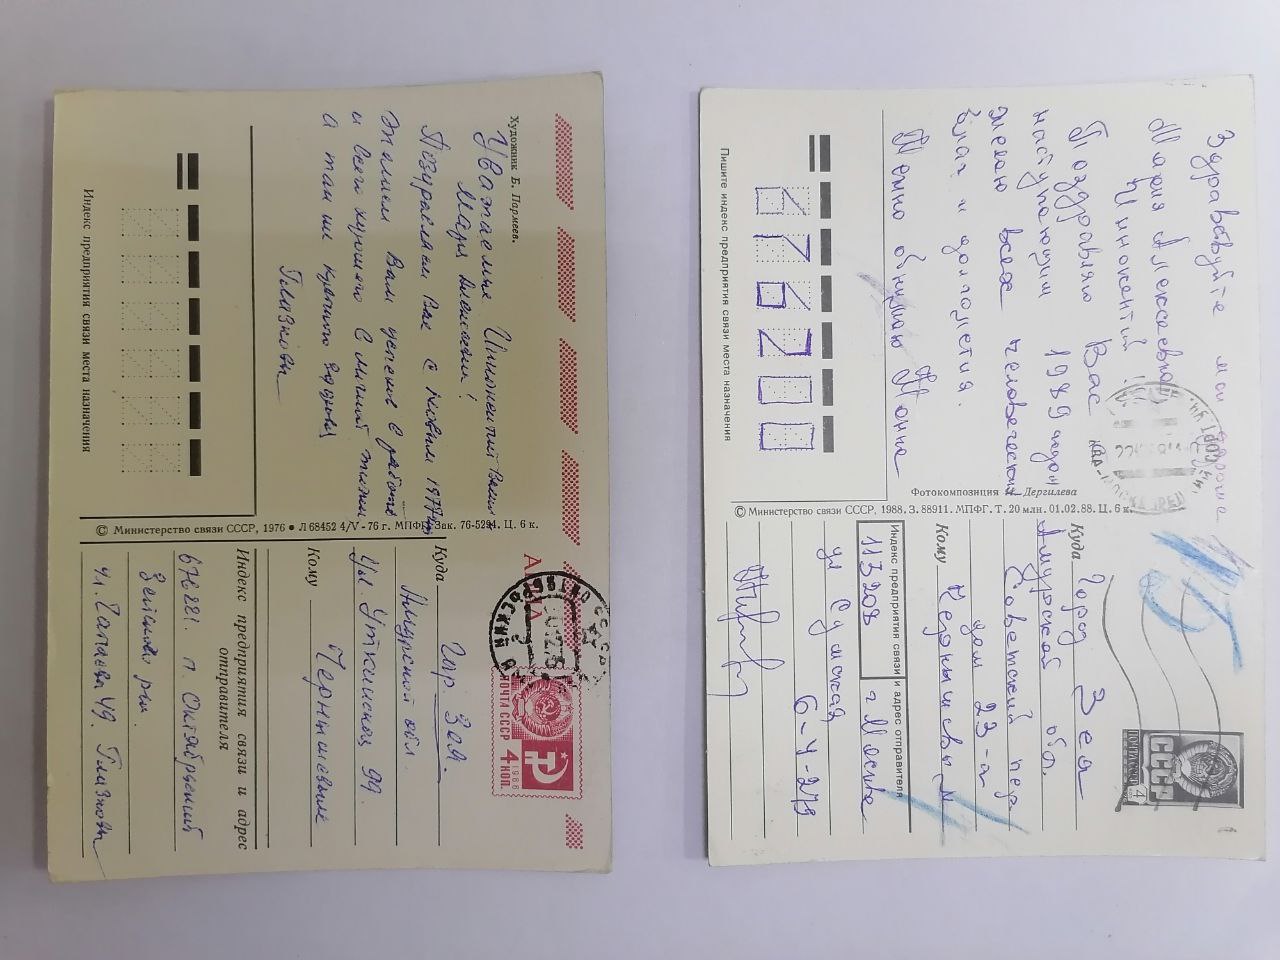 Художник Б. Пармеев.
Уважаемые Иннокентий
Мария Алексеевна!
Поздравляем Вас с Новым 1977
Желаем Вам успехов в работе
и всего хорошего в личной жизни
а так же крепкого здоровья
Глазковы
Индекс предприятия связи места назначения
© Министерство связи СССР, 1976 • Л 68452 4/V-76 г. МПФГ. Зак. 76-5294. Ц. 6 к.
АВИА
ПОЧТА СССР
4 КОП.
1966
Куда гор. Зея.
Амурской обл.
ул. Уткинская 99.
Кому
Чернышевым
Индекс предприятия связи и адрес
отправителя
676221. п. Октябрьский
Зейского р-на.
ул. Чапаева 49. Глазковы
Здравствуйте мои дорогие
Мария Алексеевна
Иннокентий!
Поздравляю Вас
наступающим 1989 годом
желаю всех человеческих
благ и долголетия.
Нежно обнимаю Нонна
Пишите индекс предприятия связи места назначения
676200
Фотокомпозиция И. Дергилева
© Министерство связи СССР, 1988. З. 88911. МПФГ. Т. 20 млн. 01.02.88. Ц. 6 к.
ПОЧТА СССР
4
Куда город Зея
Амурской обл.
Советский пер
дом 23-а
Кому Чернышевы М
Индекс предприятия связи и адрес отправителя
113208 г Москва
ул Сумская
6-4-279